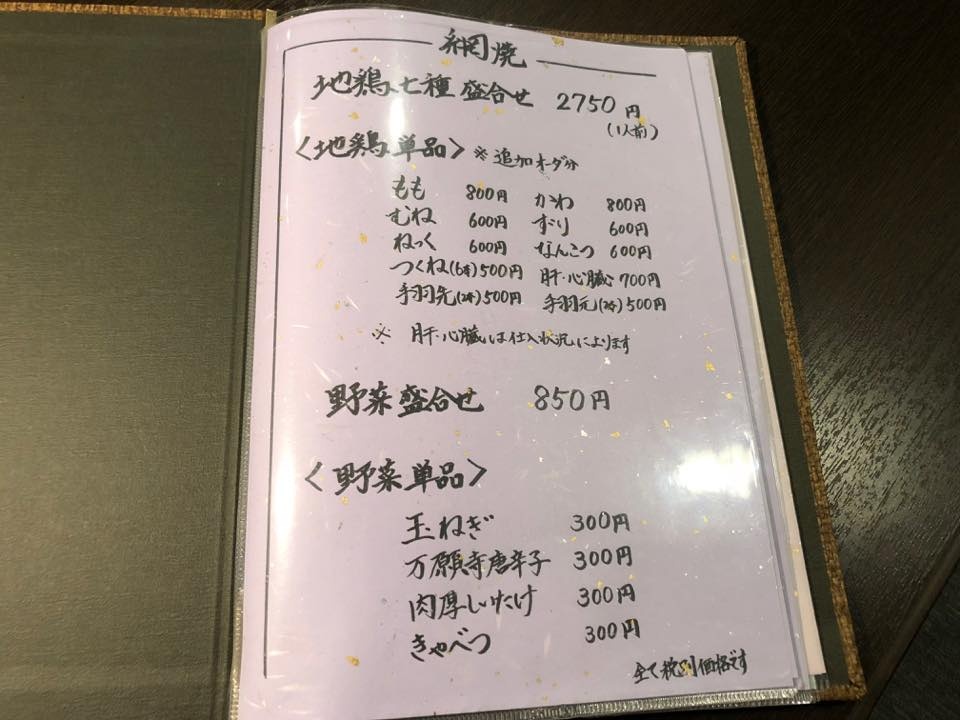 網焼
地鶏七種盛合せ 2750円
(1人前)
〈地鶏単品〉 ※追加オーダ分
もも 800円 かわ 800円
むね 600円 ずり 600円
ねっく 600円 なんこつ 600円
つくね(6本)500円 肝・心臓 700円
手羽先(2本)500円 手羽元(2本)500円
※ 肝・心臓は仕入状況によります
野菜盛合せ 850円
〈野菜単品〉
玉ねぎ 300円
万願寺唐辛子 300円
肉厚しいたけ 300円
きゃべつ 300円
全て税別価格です